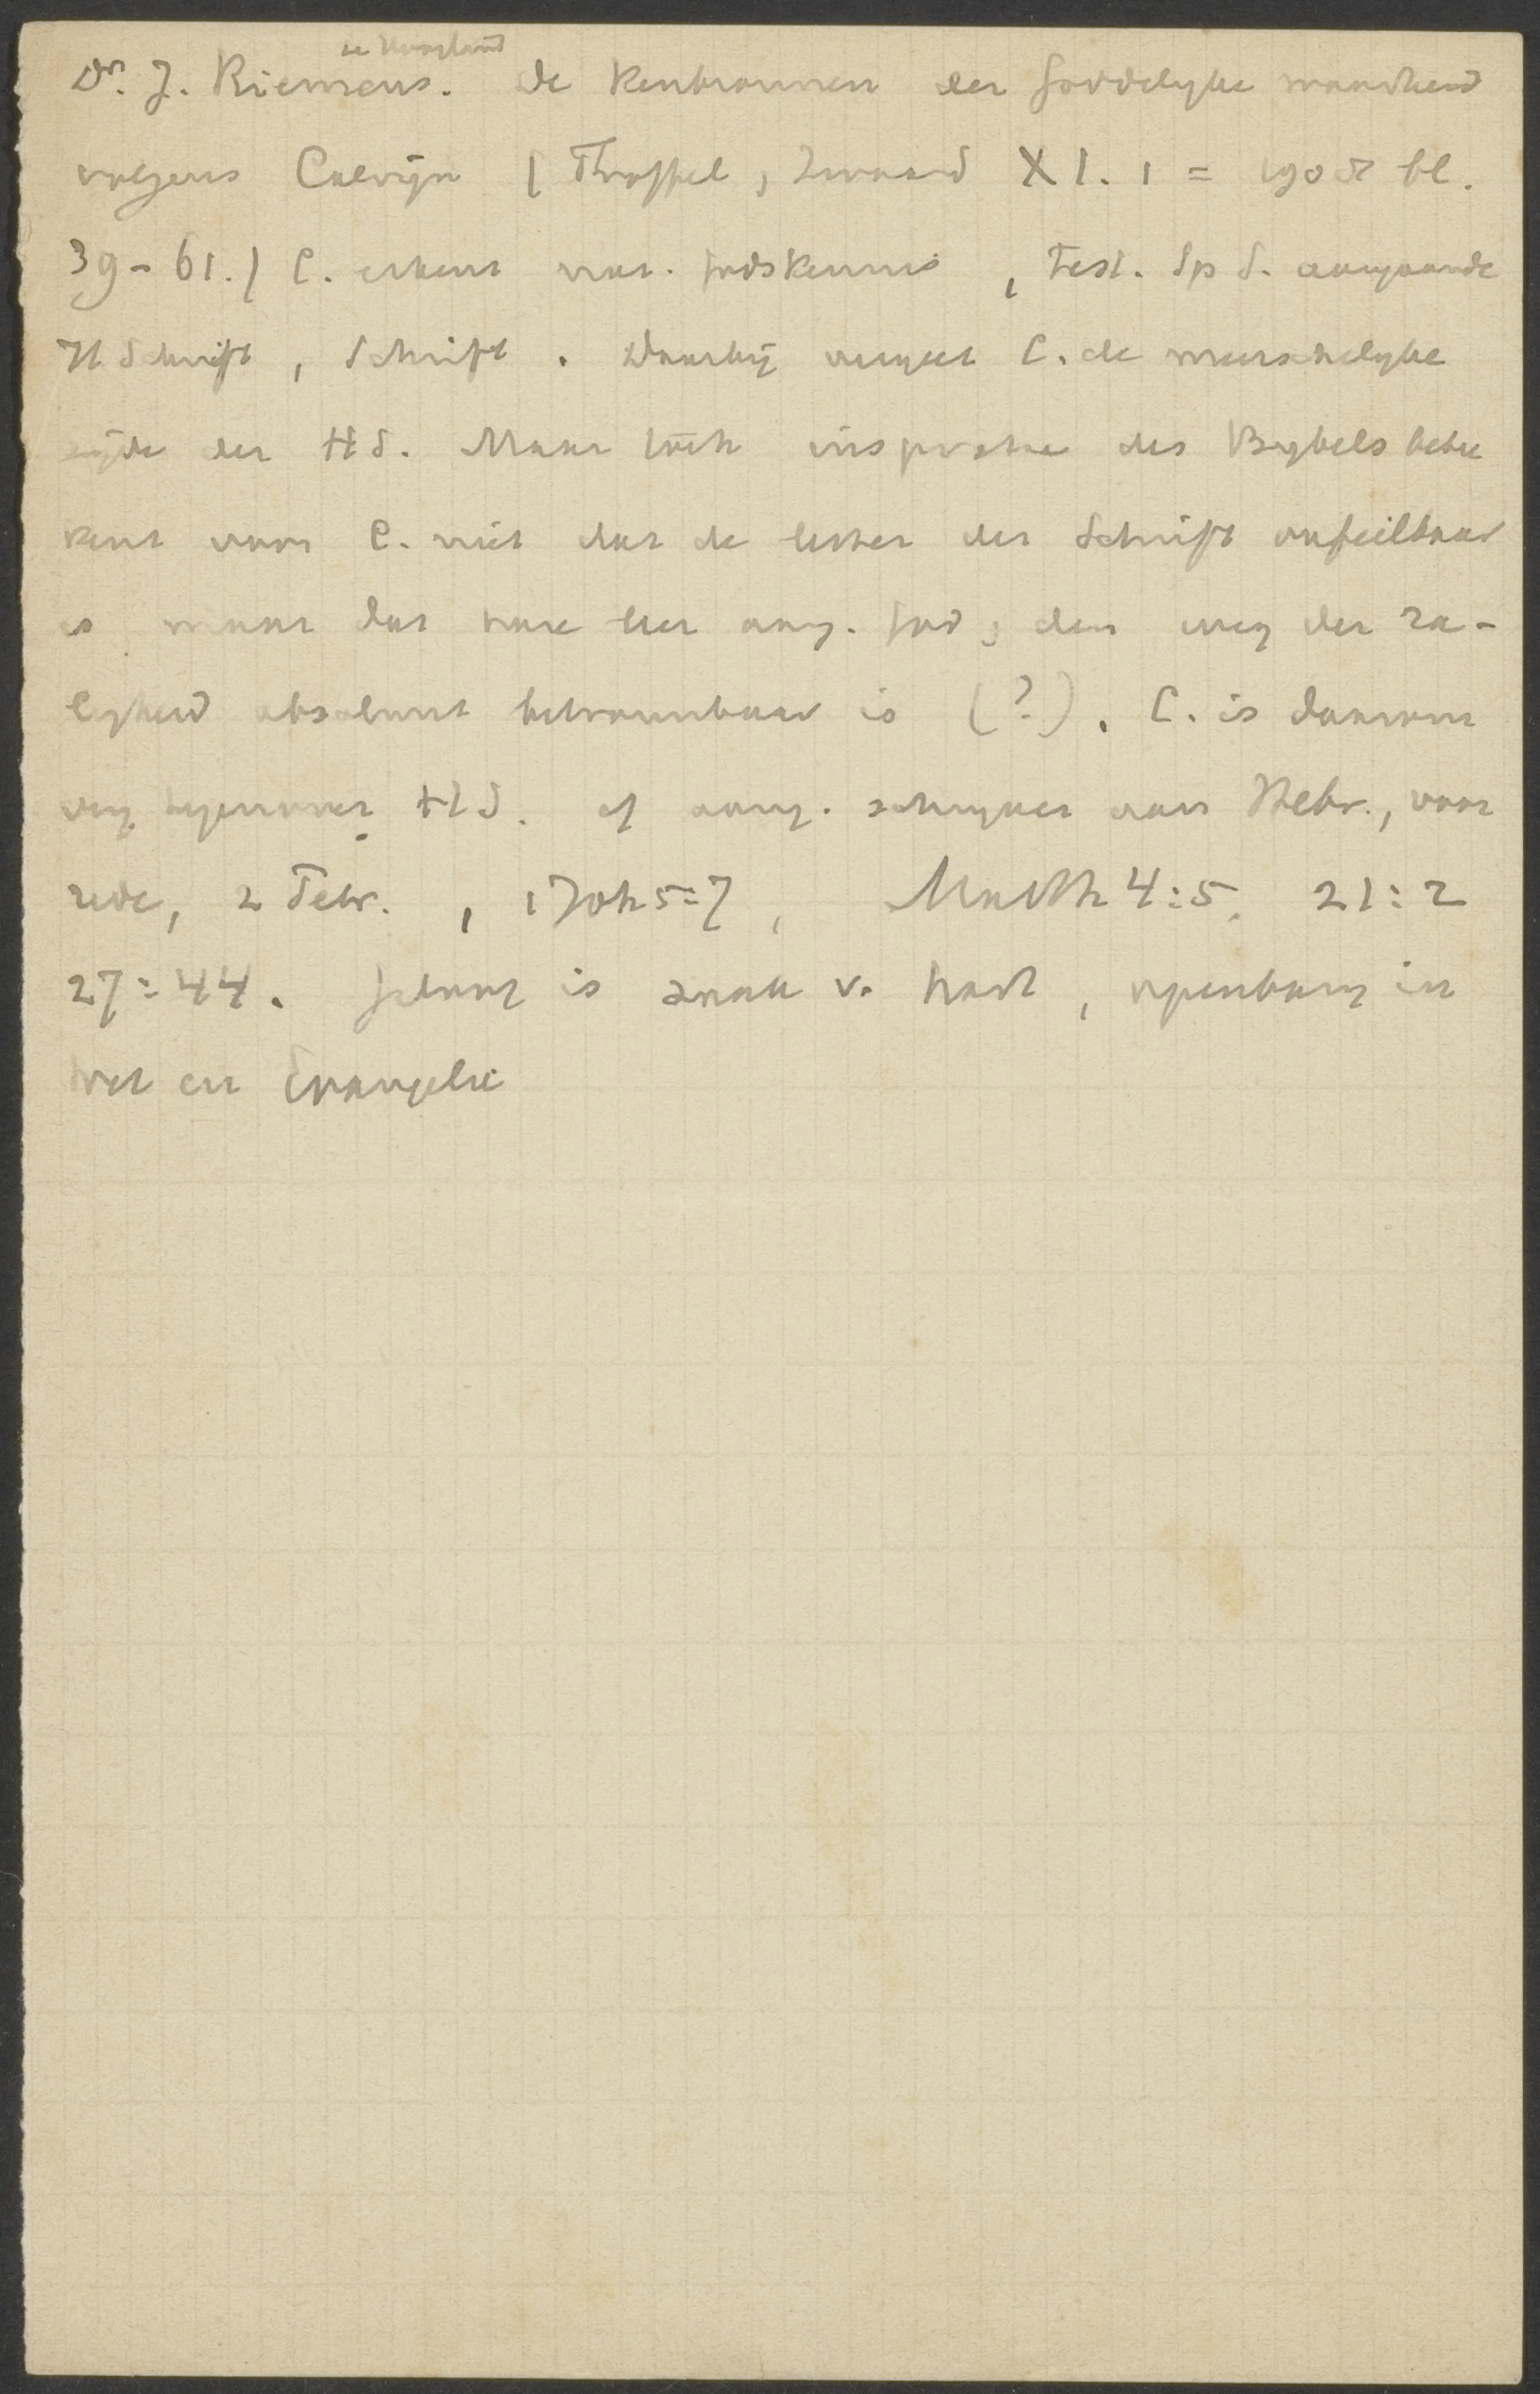 te Hoogland
Dr. J. Riemens. de Kenbronnen der Goddelyke waarheid
volgens Calvijn (Troffel, Zwaard XI. 1 = 1908 bl.
39-61.) C. erkent nat. Godskennis, Test. Sp S. aangaande
H Schrift, Schrift. Daarbij vergeet C. de menschelyke
zijde der HS. Maar toch inspiratie des Bybels betee
kent voor C. niet dat de letter der Schrift onfeilbaar
is maar dat hare leer aang. God, den weg der za-
ligheid absoluut betrouwbaar is (?). C. is daarom
vrij tegenover HS. cf aang. schryver van Hebr., voor
rede, 2 Petr., 1 Joh 5:7, Matth 4:5. 21:2
27:44. Geloof is zaak v. hart, openbarg in
wet en Evangelie